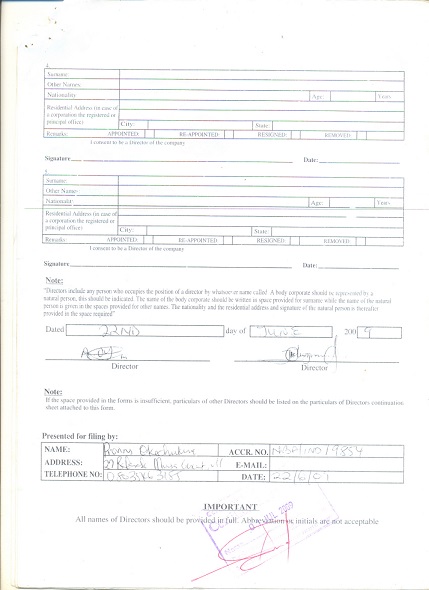 4.
Surname:
Other Names:
Nationality: Age: Years
Residential Address (in case of
a corporation the registered or
principal office) City: State:
Remarks: APPOINTED RE-APPOINTED RESIGNED REMOVED
I consent to be a Director of the company
Signature Date:
Surname:
Other Name:
Nationality: Age: Years
Residential Address (in case of
a corporation the registered or
principal office) City: State:
Remarks: APPOINTED RE-APPOINTED RESIGNED REMOVED
I consent to be a Director of the company
Signature Date:
Note:
"Directors include any person who occupies the position of a director by whatsoever name called. A body corporate should be represented by a
natural person, this should be indicated. The name of the body corporate should be written in space provided for surname while the name of the natural
person is given in the spaces provided for other names. The nationality and the residential address and signature of the natural person is thereafter
provided in the space required"
Dated 22ND day of JUNE 200 9
Director Director
Note:
If the space provided in the forms is insufficient, particulars of other Directors should be listed on the particulars of Directors continuation
sheet attached to this form.
Presented for filing by:
NAME: ACCR. NO. 9854
ADDRESS: E-MAIL:
TELEPHONE NO: DATE: 22/6/09
IMPORTANT
All names of Directors should be provided in full. Abbreviation or initials are not acceptable